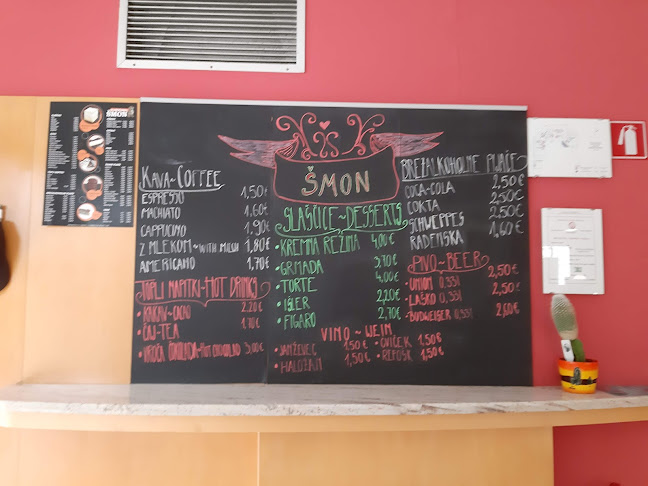 ŠMON
KAVA~COFFEE
ESPRESSO 1,50€
MACHIATO 1,60€
CAPPUCINO 1,90€
Z MLEKOM~WITH MILCH 1,80€
AMERICANO 1,70€
TOPLI NAPITKI~HOT DRINKS
• KAKAV~CACAO 2,20€
• ČAJ-TEA 1,70€
• VROČA ČOKOLADA~HOT CHOCOLATE 3,00€
SLAŠČICE~DESSERTS
• KREMNA REZINA 4,00€
• GRMADA 3,70€
• TORTE 4,00€
• IŠLER 2,20€
• FIGARO 2,70€
VINO~WEIN
• JANŽEVEC 1,50€ • OVIČEK 1,50€
• HALOŽAN 1,50€ • REFOŠK 1,50€
BREZALKOHOLNE PIJAČE
COCA-COLA 2,50€
COKTA 2,50€
SCHWEPPES 2,50€
RADENSKA 1,60€
PIVO~BEER
• UNION 0,33l 2,50€
• LAŠKO 0,33l 2,50€
• BUDWEISER 0,33l 2,60€